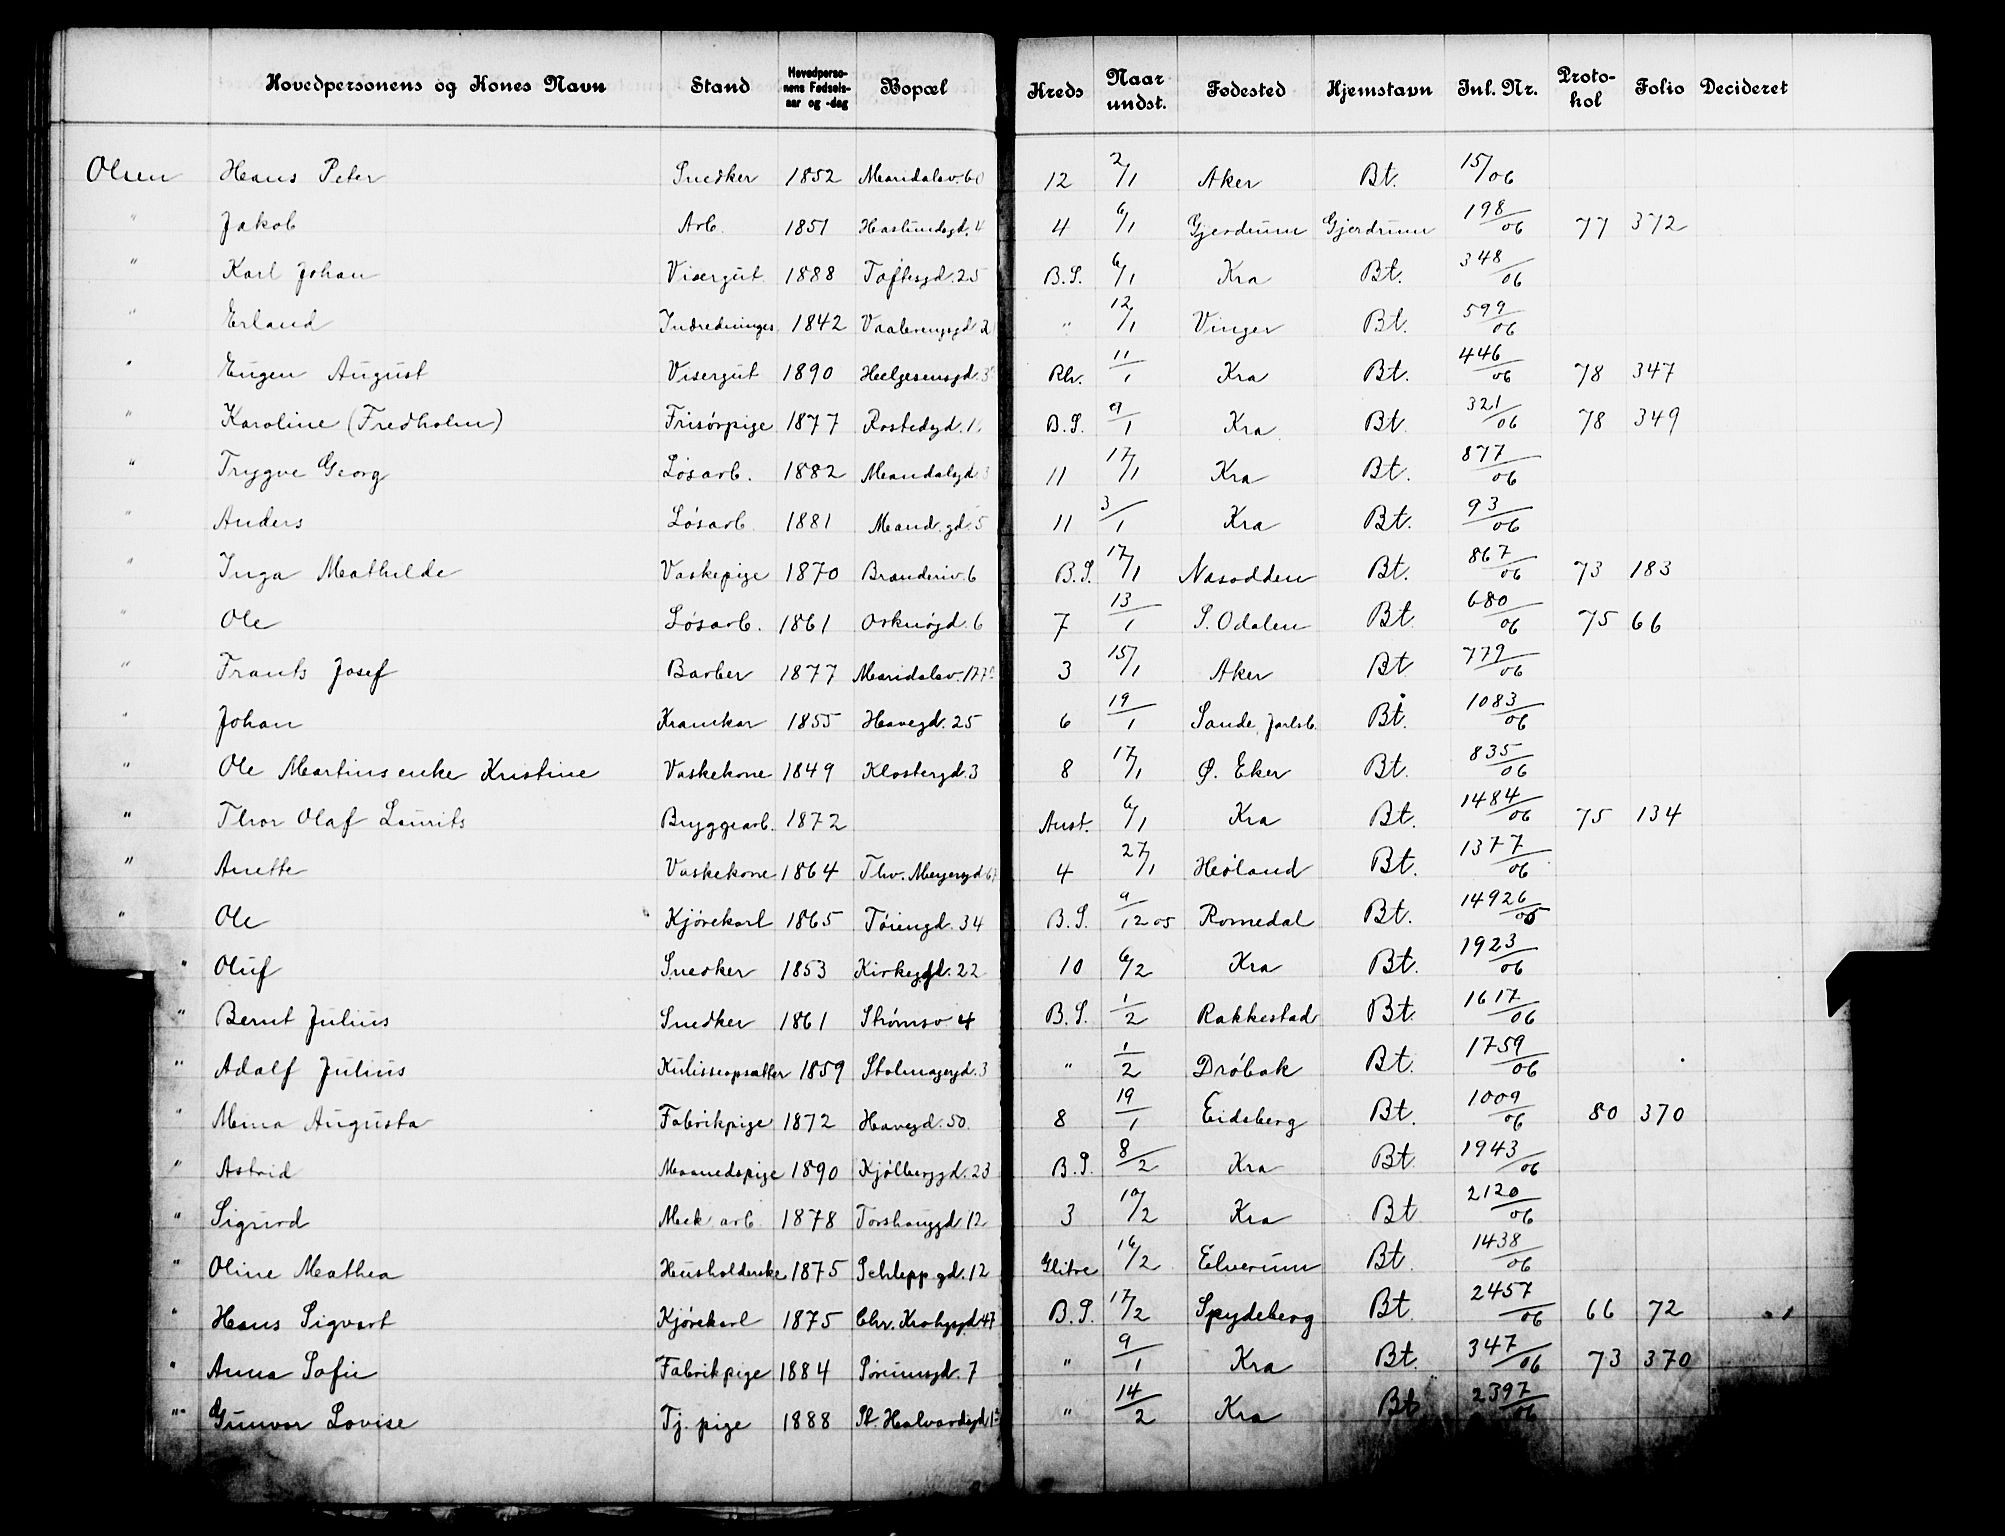 Hovedpersonens og Kones Navn Stand Hovedperso-nens Fødsels-aar og -dag Bopæl Kreds Naar undst. Fødested Hjemstavn Inl. Nr. Proto-kol Folio Decideret
Olsen Hans Peter Snedker 1852 Maridalsv. 60 12 2/1 Aker Bt. 15/06
" Jakob Arb. 1851 Haslundsgd. 4 4 6/1 Gjerdrum Gjerdrum 198/06 77 372
" Karl Johan Visergut 1888 Toftesgd. 25 B.S. 6/1 Kra Bt. 348/06
" Erland Indredninges 1842 Vaalerengsgd 2 " 12/1 Vinger Bt. 599/06
" Eugen August Visergut 1890 Helgesensgd. Rh. 11/1 Kra Bt. 446/06 78 347
" Karoline (Fredholm) Frisørpige 1877 Rostedsgd. B.S. 9/1 Kra Bt. 321/06 78 349
" Trygve Georg Løsarb. 1882 Mandalsgd 11 17/1 Kra Bt. 877/06
" Anders Løsarb. 1881 Mand. gd. 5 11 3/1 Kra Bt. 93/06
" Inga Mathilde Vaskepige 1870 Branderiv. 6 B.S. 17/1 Nesodden Bt. 867/06 73 183
" Ole Løsarb. 1861 Osknøgd. 6 7 13/1 S. Odalen Bt. 680/06 75 66
" Frants Josef Barber 1877 Maridalsv. 177 3 15/1 Aker Bt 779/06
" Johan Kramkar 1855 Havegd. 25 6 19/1 Sande, Jarlsb. Bt. 1083/06
" Ole Martinsenke Kristine Vaskekone 1849 Klostergd. 3 8 17/1 Ø. Eker Bt. 835/06
" Thor Olaf Laurits Bryggearb. 1872 Anst. 6/1 Kra Bt. 1484/06 75 134
" Anette Vaskekone 1864 Thv. Meyersgd 4 27/1 Høland Bt. 1377/06
" Ole Kjørekarl 1865 Tøiengd. 34 B.S. 9/12 05 Romedal Bt. 14926/05
" Oluf Snedker 1853 Kirkegd. 22 10 6/2 Kra Bt. 1923/06
" Bernt Julius Snedker 1861 Strømsv 4 B.S. 1/2 Rakkestad Bt. 1617/06
" Adolf Julius Kulisseopsætter 1859 Stolmagergd. 3 " 1/2 Drøbak Bt. 1759/06
" Mina Augusta Fabrikpige 1872 Havegd. 50. 8 19/1 Eidsberg Bt. 1009/06 80 370
" Astrid Maanedspige 1890 Kjølberggd. 23 B.S. 8/2 Kra Bt. 1943/06
" Sigurd Mek arb 1878 Torshauggd. 12 3 10/2 Kra Bt 2120/06
" Oline Mathea Husholderske 1875 Schleppgd. 12 Glitre 16/2 Elverum Bt. 1438/06
" Hans Sigvart Kjørekarl 1875 Chr. Krohgsgd 47 B.S. 17/2 Spydeberg Bt 2457/06 66 72
" Anna Sofie Fabrikpige 1884 Sørumsgd. 7 " 9/1 Kra Bt. 347/06 73 370
" Gunvor Lovise Tj. pige 1888 St. Halvardsgd " 14/2 Kra Bt 2397/06